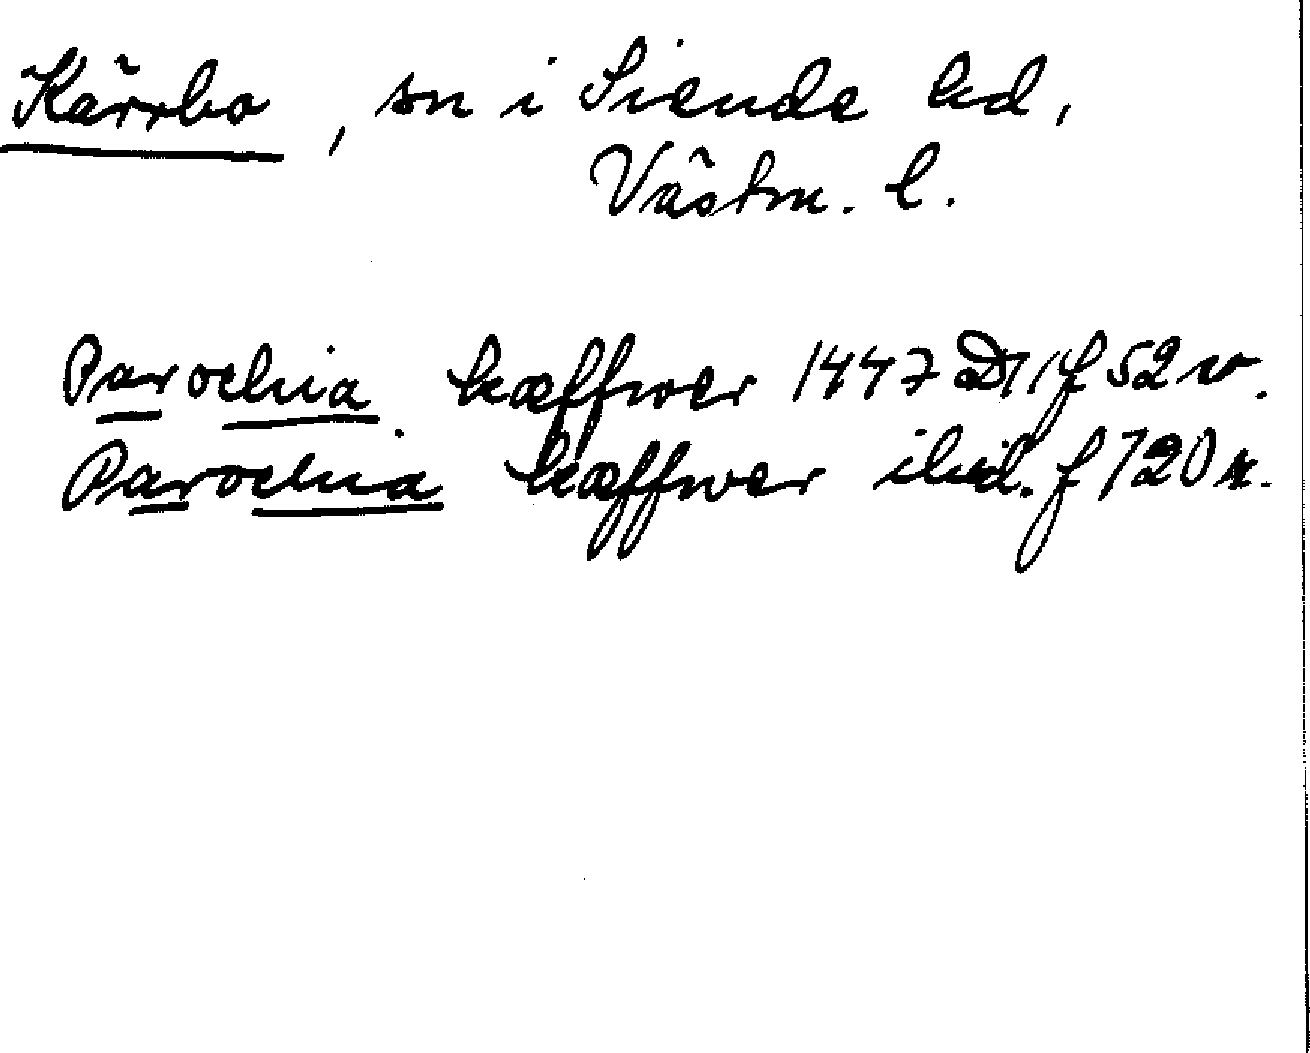 Kärrbo, sn i Siende hd,
Västm. l.
Parochia kæffwer 1447 D11 f 52 v.
Parochia kæffwer ibid. f 120 r.